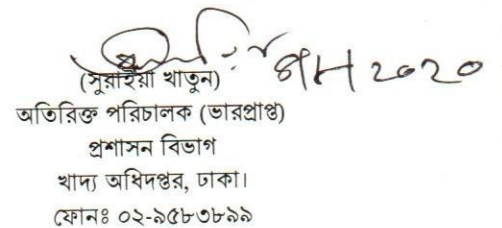 ২০২০
(সুরাইয়া খাতুন)
অতিরিক্ত পরিচালক (ভারপ্রাপ্ত)
প্রশাসন বিভাগ
খাদ্য অধিদপ্তর, ঢাকা।
ফোনঃ ০২-৯৫৮৩৮৯৯